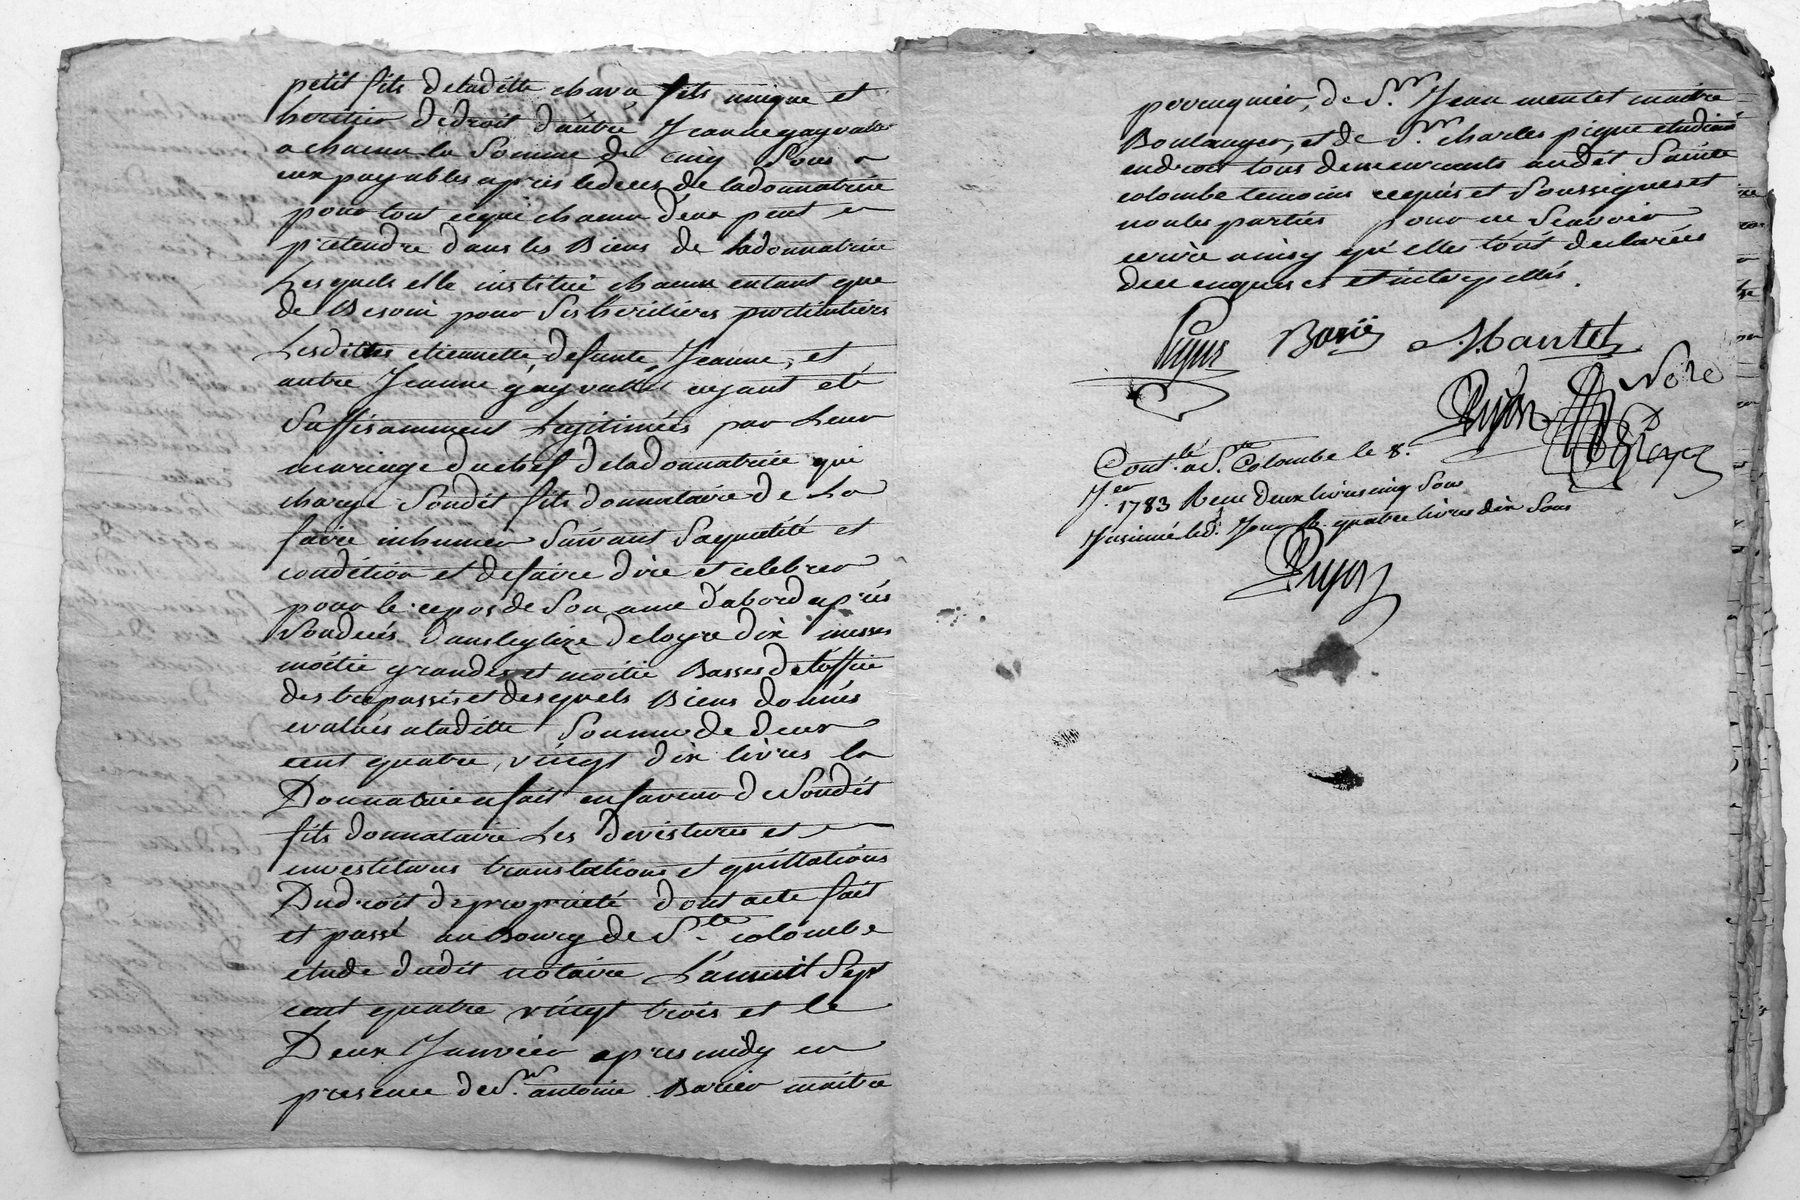 petit fils deladitte chava fils unique et
heritier dedroit dautre Jeanne gayvallet
a chacun la Somme de cinq Sous a
eux payables apres ledeces de ladonnatrice
pour tout cequi chacun d'eux peut en
pretendre dans les Biens de ladonnatrice
Lesquels elle institue chacun entant que
de Besoin pour Ses heritiers particuliers
Lesdittes etiennette, defunte Jeanne, et
autre Jeanne gayvallet ayant eté
Suffisamment Legitimées par Leur
mariage duchef deladonnatrice qui
charge Sondit fils donnataire de La
faire inhumer Suivant Saqualité et
condition et defaire dire et celebrer
pour le repos de Son ame d'abord après
Sondecés dansleglize deloyre dix messes
moitié grandes et moitié Basses deloffice
des trepassés et desquels Biens donnés
evalués aladitte Somme de deux
cent quatre vingt dix livres la
Donnatrice fait enfaveur deSondit
fils donnataire Les devestures et
investitures translations et quittations
Dudroit depropriété dont acte fait
et passé au Bourg de Ste colombe
etude dudit notaire L'anmil Sept
cent quatre vingt trois et le
Deux Janvier apres midy en
presence deSr. antoine Barier maitre
perruquier, de Sr. Jean mentet maitre
Boulanger, et de Sr. charles pique etudiant
endroit tous demeurants audit Sainte
colombe temoins requis et Soussignes et
nonles parties pour ne Scavoir
ecrire ainsy qu'elles l'ont declarées
dece enquises et interpellés.
Barié
Mantel
Dujon Nore
Contlé. a Ste. Colombe le 8.
Jer. 1783 Recu deux livres cinq Sous
Insinué led. Jour R. quatre livres dix Sous
Dujon